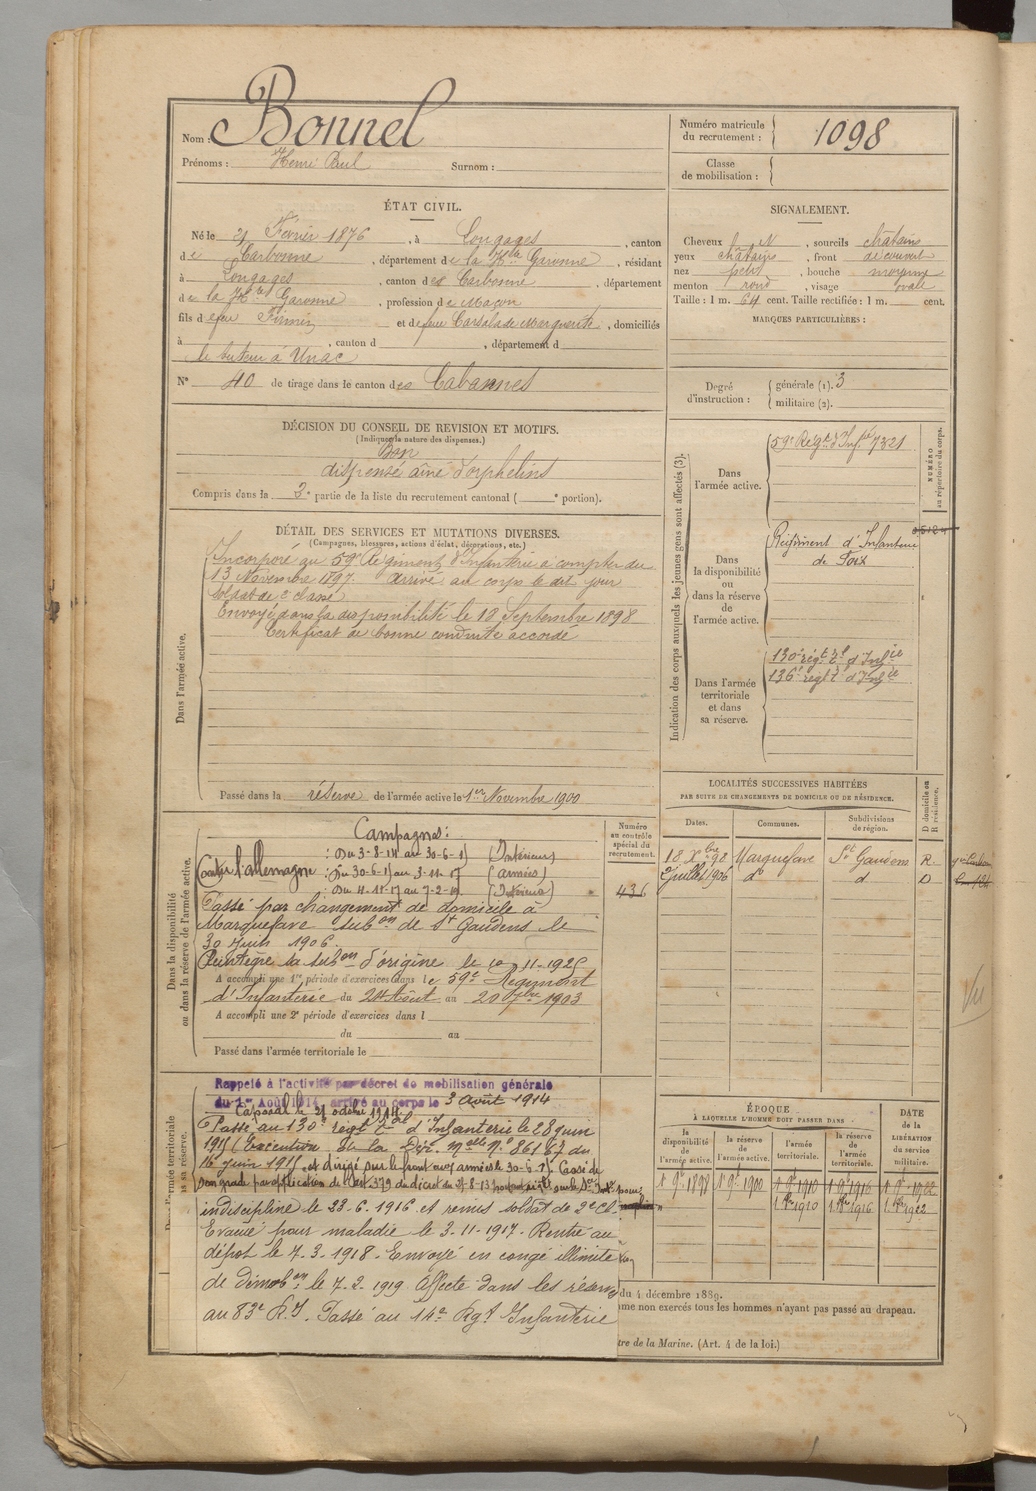 Nom : Bonnel
Prénoms : Henri Paul Surnom :
Numéro matricule du recrutement : 1098
Classe de mobilisation :
ÉTAT CIVIL.
Né le 21 Février 1876, à Longages, canton
de Carbonne, département de la Hte Garonne, résidant
à Longages, canton de Carbonne, département
de la Hte Garonne, profession de Maçon
fils de feu Firmin et de feu Carsalade Marguerite, domiciliés
à , canton d , département d
le tuteur à Unac
N° 40 de tirage dans le canton des Cabannes
SIGNALEMENT.
Cheveux , sourcils châtains
yeux châtains, front découvert
nez petit, bouche moyenne
menton rond, visage ovale
Taille : 1 m. 64 cent. Taille rectifiée : 1 m. cent.
MARQUES PARTICULIÈRES :
Degré d'instruction : générale (1). 3
militaire (2).
DÉCISION DU CONSEIL DE REVISION ET MOTIFS.
(Indiquer la nature des dispenses.)
Bon
dispensé aîné d'orphelins
Compris dans la 3e partie de la liste du recrutement cantonal ( e portion).
DÉTAIL DES SERVICES ET MUTATIONS DIVERSES.
(Campagnes, blessures, actions d'éclat, décorations, etc.)
Dans l'armée active.
Incorporé au 59e Régiment d'Infanterie à compter du
13 Novembre 1897. Arrivé au corps le dit jour
Soldat de 2e classe
Envoyé dans la disponibilité le 18 Septembre 1898
Certificat de bonne conduite accordé
Passé dans la réserve de l'armée active le 1er Novembre 1900
Indication des corps auxquels les jeunes gens sont affectés (3).
NUMÉRO au répertoire du corps.
Dans l'armée active.
59e Régt d'Infie 7321
Dans la disponibilité ou dans la réserve de l'armée active.
Régiment d'Infanterie
de Foix
Dans l'armée territoriale et dans sa réserve.
130e régt tal d'Infie
136e régt tal d'Infie
LOCALITÉS SUCCESSIVES HABITÉES
PAR SUITE DE CHANGEMENTS DE DOMICILE OU DE RÉSIDENCE.
D domicile ou R résidence.
Dates. Communes. Subdivisions de région.
18 Xbre 98 Marquefave St Gaudens R.
2 juillet 1906 do d D
Dans la disponibilité ou dans la réserve de l'armée active.
Numéro au contrôle spécial du recrutement.
436
Campagnes :
Contre l'Allemagne
: Du 3-8-14 au 30-6-15 (Intérieur)
: Du 30-6-15 au 3-11-17 (armées)
: Du 4-11-17 au 7-2-19 (Intérieur)
Passé par changement de domicile à
Marquefave subon de St Gaudens le
30 Juin 1906.
Réintégré la subon d'origine le 10-11-1925
A accompli une 1re période d'exercices dans le 59e Régiment
d'Infanterie du 24 Août au 20 7bre 1903
A accompli une 2e période d'exercices dans l
du au
Passé dans l'armée territoriale le
Rappelé à l'activité par décret de mobilisation générale
du 1er Août 1914, arrivé au corps le 3 août 1914
Caporal le 21 octobre 1914.
Passé au 130e régt tal d'Infanterie le 28 juin
1915 (Exécution de la Dép. Melle No 86167 du
16 juin 1915 et dirigé sur le front aux armées le 30-6-15. Cassé de
son grade par application de l'art. 379 du décret du 25-8-13 pour
indiscipline le 23-6-1916 et remis soldat de 2e cl.
Evacué pour maladie le 3-11-1917. Rentré au
dépôt le 7-3-1918. Envoyé en congé illimité
de démobon le 7-2-1919. Affecté dans les réserves
au 83e R.I. Passé au 14e Rgt Infanterie
ÉPOQUE
À LAQUELLE L'HOMME DOIT PASSER DANS
la disponibilité de l'armée active. la réserve de l'armée active. l'armée territoriale. la réserve de l'armée territoriale.
DATE DE LA LIBÉRATION du service militaire.
1 9bre 1898 1 9bre 1900 1 9bre 1910 1 9bre 1916 1 9bre 1922
1 8bre 1910 1 8bre 1916 1 8bre 1922
du 4 décembre 1889.
mme non exercés tous les hommes n'ayant pas passé au drapeau.
tre de la Marine. (Art. 4 de la loi.)
Vu